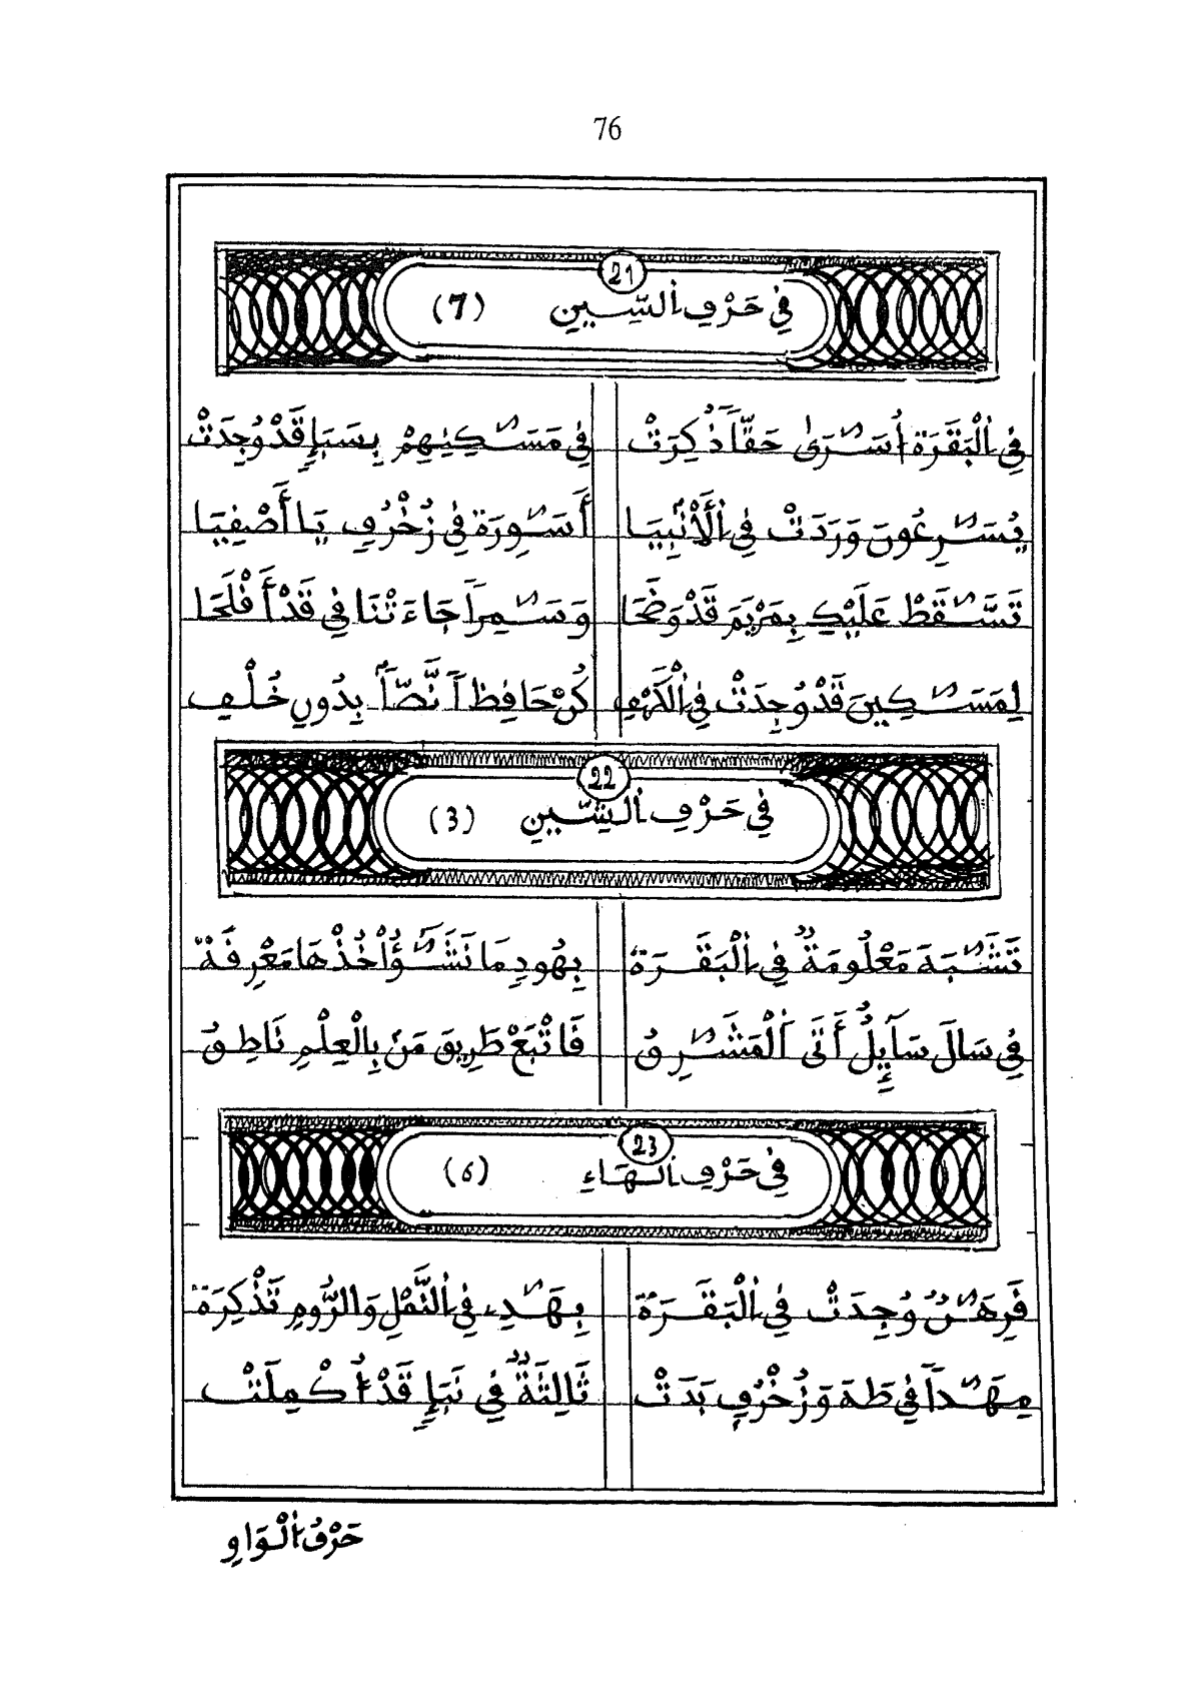 76
21
فِي حَرْفِ السِّينِ (7)
فِي الْبَقَرَةِ أُسَٰرَىٰ حَقّاً ذُكِرَتْ فِي مَسَٰكِنِهِمْ بِسَبَإٍ قَدْ وُجِدَتْ
يُسَٰرِعُونَ وَرَدَتْ فِي الْأَنْبِيَا أَسَٰوِرَة فِي زُخْرُفِ يَا أَصْفِيَا
تَسَّٰقَطْ عَلَيْكِ بِمَرْيَمَ قَدْ وَضَحَا وَسَٰمِراً جَاءَتْنَا فِي قَدْ أَفْلَحَا
لِمَسَٰكِينَ قَدْ وُجِدَتْ فِي الْكَهْفِ كُنْ حَافِظاً نَّصّاً بِدُونِ خُلْفِ
22
فِي حَرْفِ الشِّينِ (3)
تَشَٰبَهَ مَعْلُومَةٌ فِي الْبَقَرَة بِهُودِ مَا نَشَٰؤُاْ خُذْهَا مَعْرِفَهْ
فِي سَالَ سَآئِلٌ أَتَى الْمَشَٰرِقُ فَاتْبَعْ طَرِيقَ مَنْ بِالْعِلْمِ نَاطِقُ
23
فِي حَرْفِ الْهَاءِ (6)
فَرِهَٰنٌ وُجِدَتْ فِي الْبَقَرَة بِهَٰدِ فِي النَّمْلِ وَالرُّومِ تَذْكِرَة
مِهَٰداً فِي طَهَ وَزُخْرُفٍ بَدَتْ ثَالِثَةٌ فِي نَبَإٍ قَدْ أُكْمِلَتْ
حَرْفُ الْوَاوِ